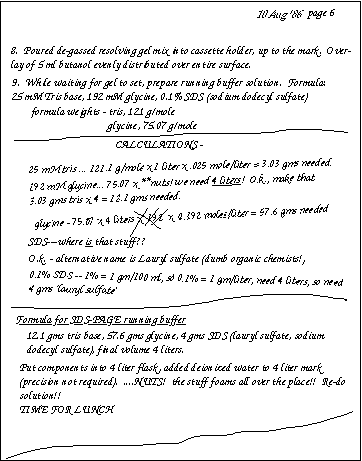 10 Aug '86 page 6
8. Poured de-gassed resolving gel mix into cassette holder, up to the mark. Over-
lay of 5 ml butanol evenly distributed over entire surface.
9. While waiting for gel to set, prepare running buffer solution. Formula:
25 mM Tris base, 192 mM glycine, 0.1% SDS (sodium dodecyl sulfate)
formula weights - tris, 121 g/mole
glycine, 75.07 g/mole
CALCULATIONS -
25 mM tris ... 121.1 g/mole x 1 liter x .025 mole/liter = 3.03 gms needed.
192 mM glycine... 75.07 x **nuts! we need 4 liters! O.k., make that
3.03 gms tris x 4 = 12.1 gms needed.
glycine -75.07 x 4 liters x 192 x 0.192 moles/liter = 57.6 gms needed
SDS---where is that stuff??
O.k. - alternative name is Lauryl sulfate (dumb organic chemists!,
0.1% SDS -- 1% = 1 gm/100 ml, so 0.1% = 1 gm/liter, need 4 liters, so need
4 gms 'lauryl sulfate'
Formula for SDS-PAGE running buffer
12.1 gms tris base, 57.6 gms glycine, 4 gms SDS (lauryl sulfate, sodium
dodecyl sulfate), final volume 4 liters.
Put components into 4 liter flask, added deionized water to 4 liter mark
(precision not required). ....NUTS! the stuff foams all over the place!! Re-do
solution!!
TIME FOR LUNCH